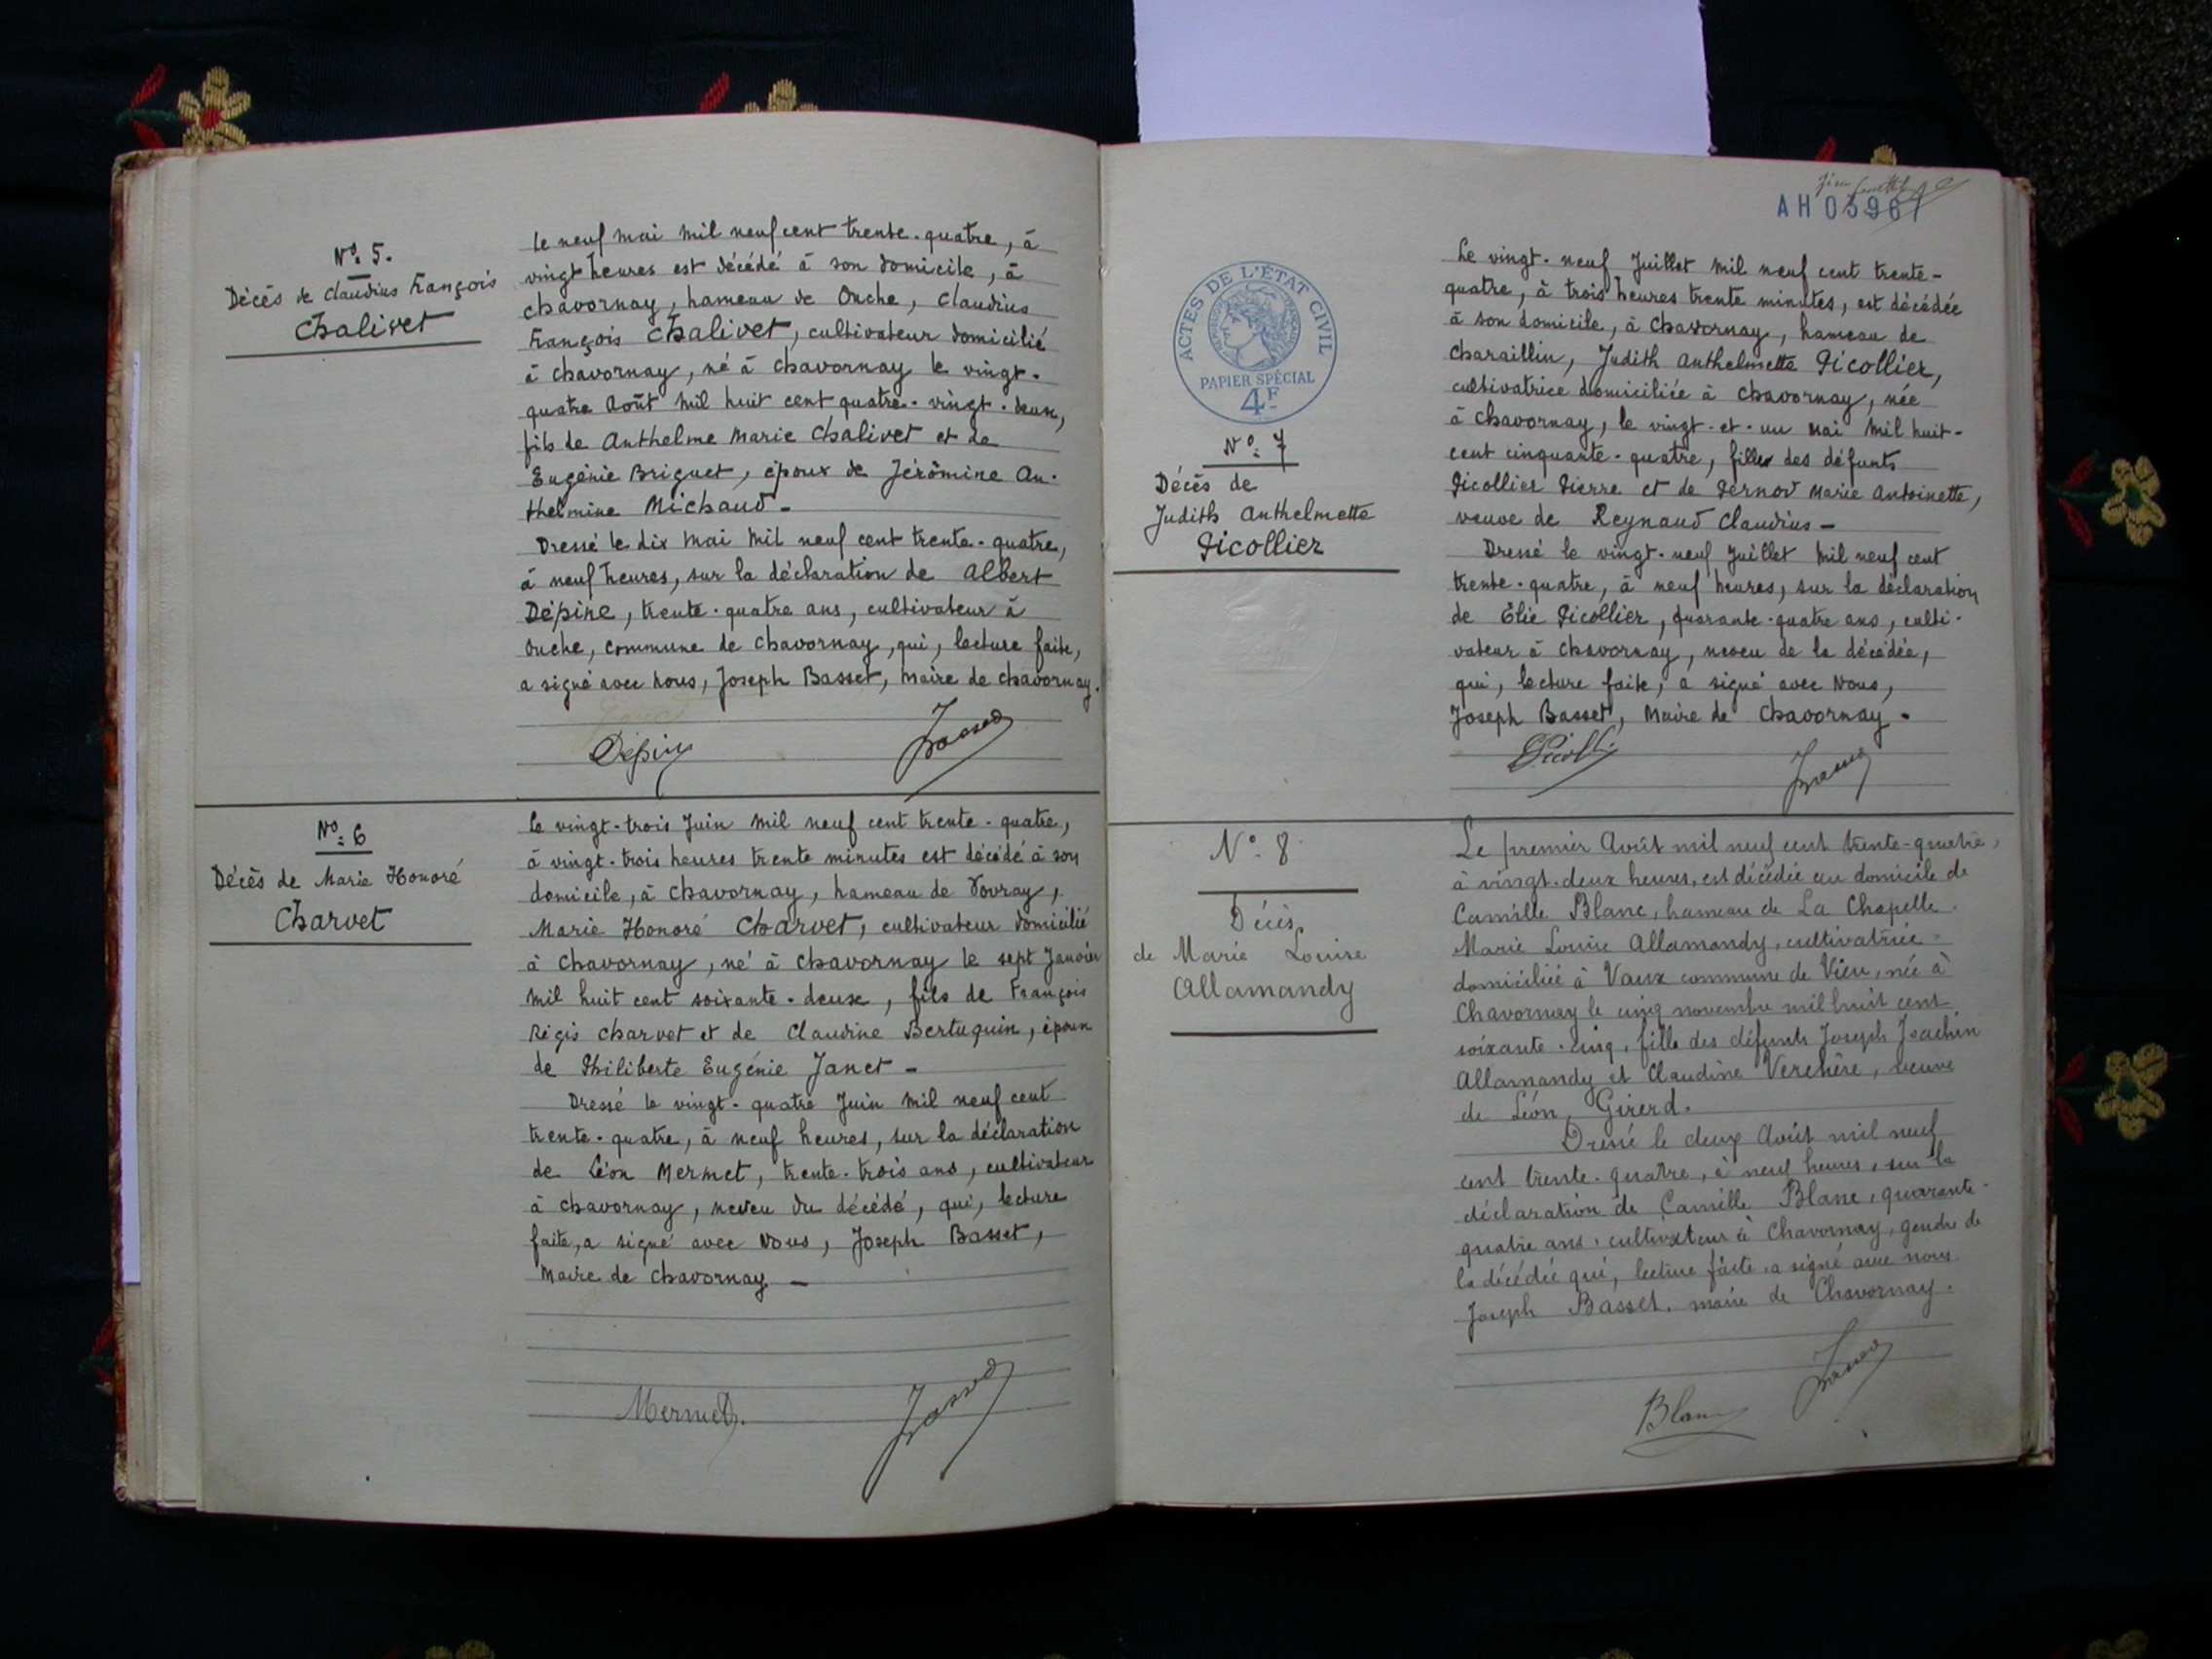 Nº 5.
Décès de Claudius François
Chalivet
Le neuf mai mil neuf cent trente-quatre, à
vingt heures est décédé à son domicile, à
Chavornay, hameau de Ouche, Claudius
François Chalivet, cultivateur domicilié
à Chavornay, né à Chavornay le vingt-
quatre Août mil huit cent quatre-vingt-deux,
fils de Anthelme Marie Chalivet et de
Eugénie Briguet, époux de Jérômine An-
thelmine Michaud-
Dressé le dix mai mil neuf cent trente-quatre,
à neuf heures, sur la déclaration de Albert
Dépine, trente-quatre ans, cultivateur à
Ouche, commune de Chavornay, qui, lecture faite,
a signé avec nous, Joseph Basset, Maire de Chavornay.
Dépin
Basset
Nº 6
Décès de Marie Honoré
Charvet
Le vingt-trois Juin mil neuf cent trente-quatre,
à vingt-trois heures trente minutes est décédé à son
domicile, à Chavornay, hameau de Vovray,
Marie Honoré Charvet, cultivateur domicilié
à Chavornay, né à Chavornay le sept Janvier
mil huit cent soixante-deux, fils de François
Régis Charvet et de Claudine Bertuquin, époux
de Philiberte Eugénie Janet-
Dressé le vingt-quatre Juin mil neuf cent
trente-quatre, à neuf heures, sur la déclaration
de Léon Mermet, trente-trois ans, cultivateur
à Chavornay, neveu du décédé, qui, lecture
faite, a signé avec Nous, Joseph Basset,
Maire de Chavornay-
Mermet.
Basset
AH 03961
ACTES DE L'ÉTAT CIVIL
PAPIER SPÉCIAL
4F
Nº 7
Décès de
Judith Anthelmette
Picollier
Le vingt-neuf Juillet mil neuf cent trente-
quatre, à trois heures trente minutes, est décédée
à son domicile, à Chavornay, hameau de
Charaillin, Judith Anthelmette Picollier,
cultivatrice domiciliée à Chavornay, née
à Chavornay, le vingt-et-un Mai mil huit-
cent cinquante-quatre, fille des défunts
Picollier Pierre et de Pernod Marie Antoinette,
veuve de Reynaud Claudius-
Dressé le vingt-neuf Juillet mil neuf cent
trente-quatre, à neuf heures, sur la déclaration
de Élie Picollier, quarante-quatre ans, culti-
vateur à Chavornay, neveu de la décédée,
qui, lecture faite, a signé avec Nous,
Joseph Basset, Maire de Chavornay.
Basset
Nº 8
Décès
de Marie Louise
Allamandy
Le premier Août mil neuf cent trente-quatre,
à vingt-deux heures, est décédée au domicile de
Camille Blanc, hameau de La Chapelle.
Marie Louise Allamandy, cultivatrice
domiciliée à Vaux commune de Vieu, née à
Chavornay le cinq novembre mil huit cent
soixante-cinq, fille des défunts Joseph Joachin
Allamandy et Claudine Verchère, veuve
de Léon Girerd.
Dressé le deux Août mil neuf
cent trente-quatre, à neuf heures, sur la
déclaration de Camille Blanc, quarante-
quatre ans, cultivateur à Chavornay, gendre de
la décédée qui, lecture faite, a signé avec nous
Joseph Basset, maire de Chavornay.
Blanc
Basset